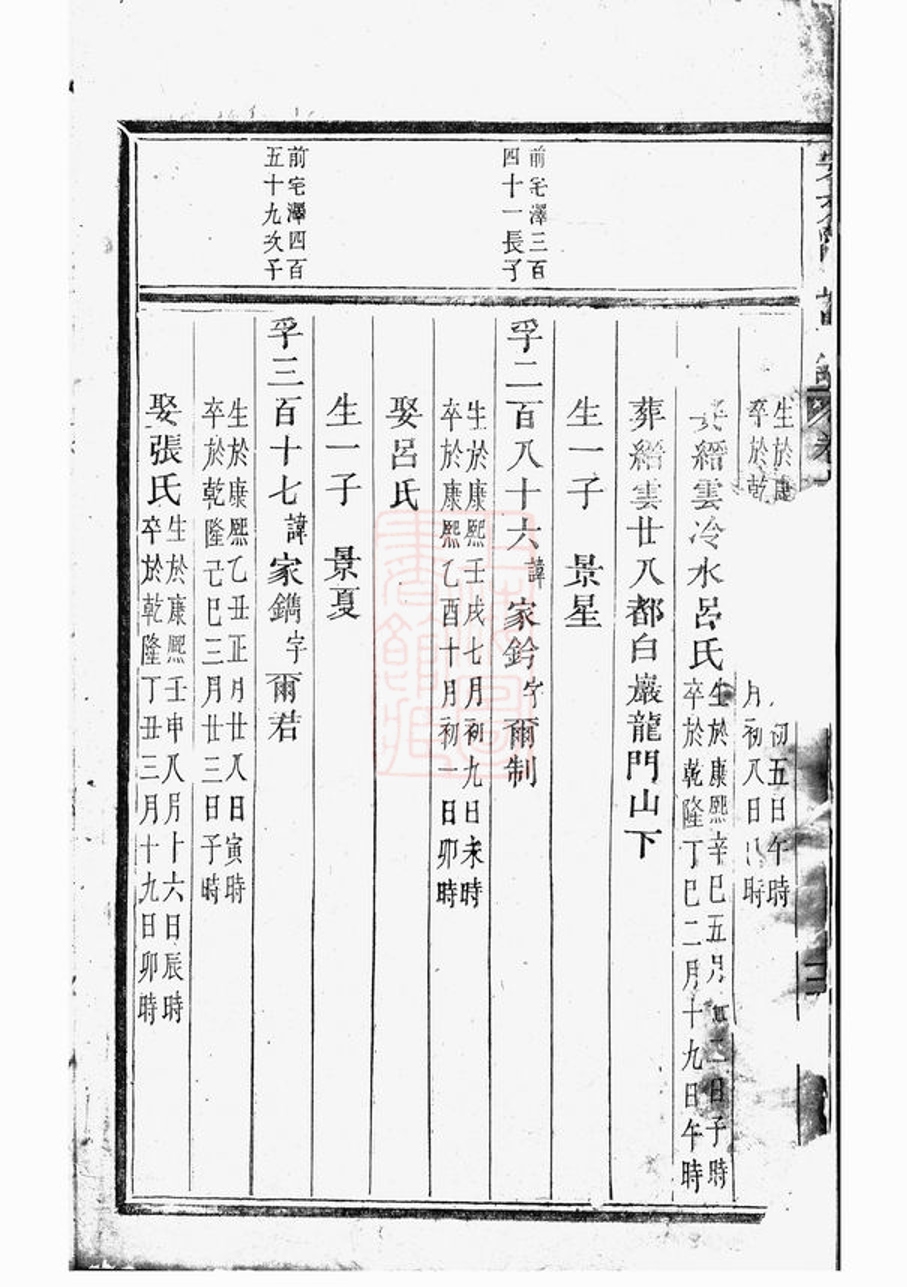 生於康
初五日午時
卒於乾
月初八日時
縉雲冷水呂氏
生於康熙辛巳五月二日子時
卒於乾隆丁巳二月十九日午時
葬縉雲廿八都白巖龍門山下
生一子 景星
前宅澤三百
四十一長子
孚二百八十六諱家鈐字爾制
生於康熙壬戌七月初九日未時
卒於康熙乙酉十月初一日卯時
娶呂氏
生一子 景夏
前宅澤四百
五十九次子
孚三百十七諱家鐫字爾若
生於康熙乙丑正月廿八日寅時
卒於乾隆己巳三月廿三日子時
娶張氏
生於康熙壬申八月十六日辰時
卒於乾隆丁丑三月十九日卯時